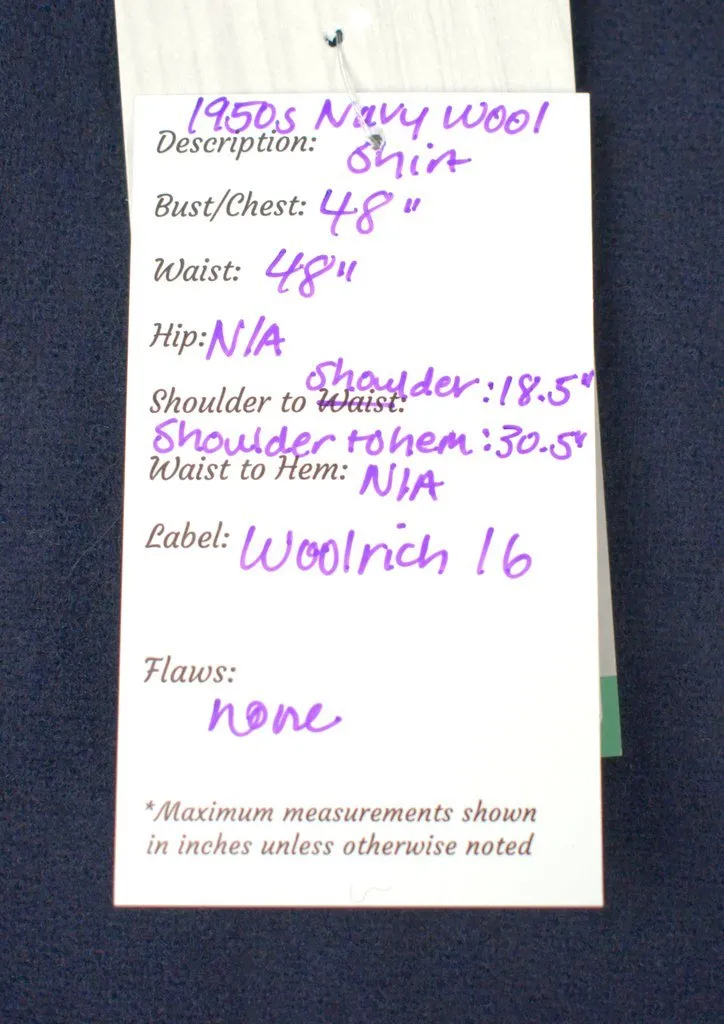 1950s Navy Wool
Description: Shirt
Bust/Chest: 48"
Waist: 48"
Hip: N/A
Shoulder to Waist: Shoulder: 18.5"
Shoulder to hem: 30.5"
Waist to Hem: N/A
Label: Woolrich 16
Flaws:
none
*Maximum measurements shown
in inches unless otherwise noted